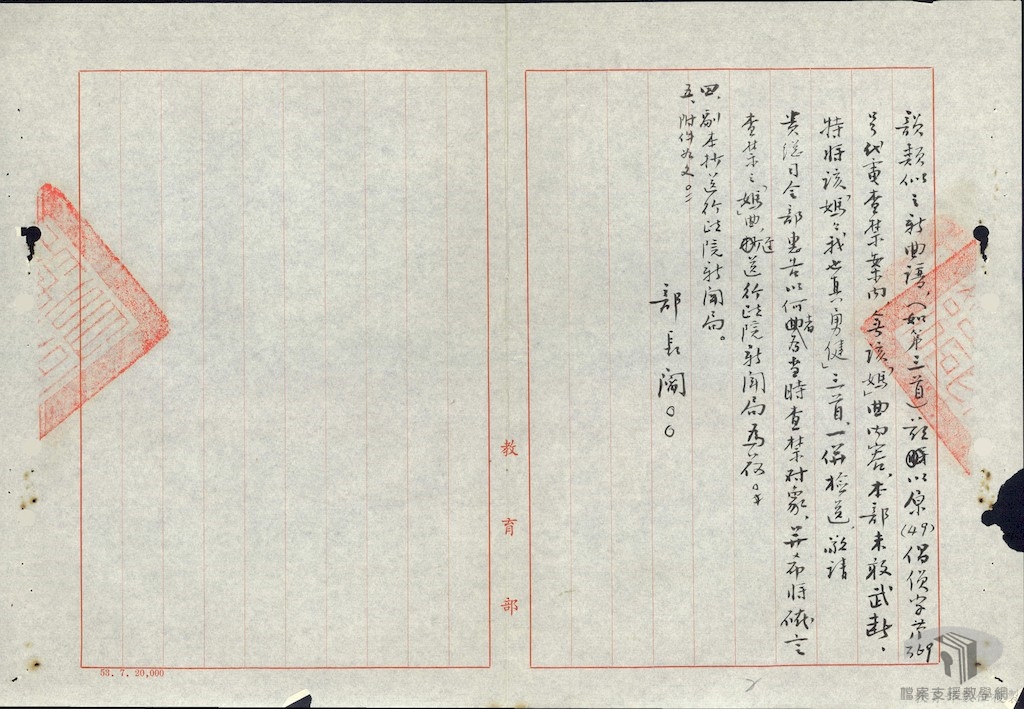 韻類似之新曲譜，(如第三首)茲以原(49)倡偵字第569
号代電查禁案內無該「媽」曲內容，本部未敢武斷。
特將該「媽媽我也真勇健」三首，一併檢送，敬請
貴總司令部惠告以何者為當時查禁對象，并希將確定
查禁之「媽」曲，逕送行政院新聞局為荷。
四、副本抄送行政院新聞局。
五、附件如文。
部長閻○○
教育部
58. 7. 20,000
檔案支援教學網